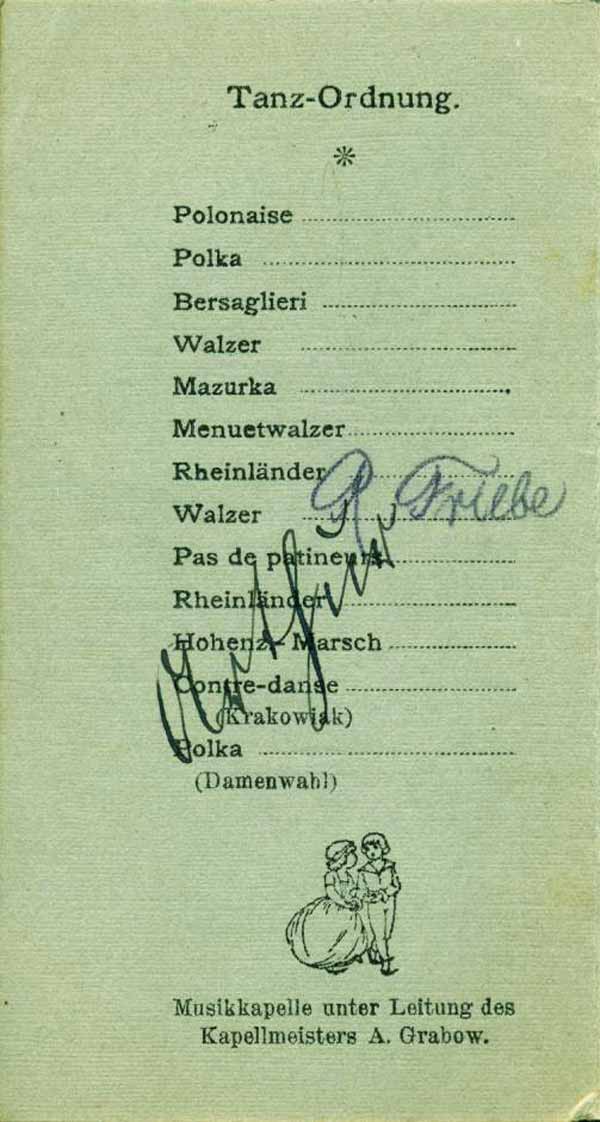 Tanz-Ordnung.
Polonaise
Polka
Bersaglieri
Walzer
Mazurka
Menuetwalzer
Rheinländer
R. Friebe
Walzer
Pas de patineurs
Rheinländer
Hohenz.-Marsch
Contre-danse
(Krakowiak)
Polka
(Damenwahl)
Musikkapelle unter Leitung des
Kapellmeisters A. Grabow.